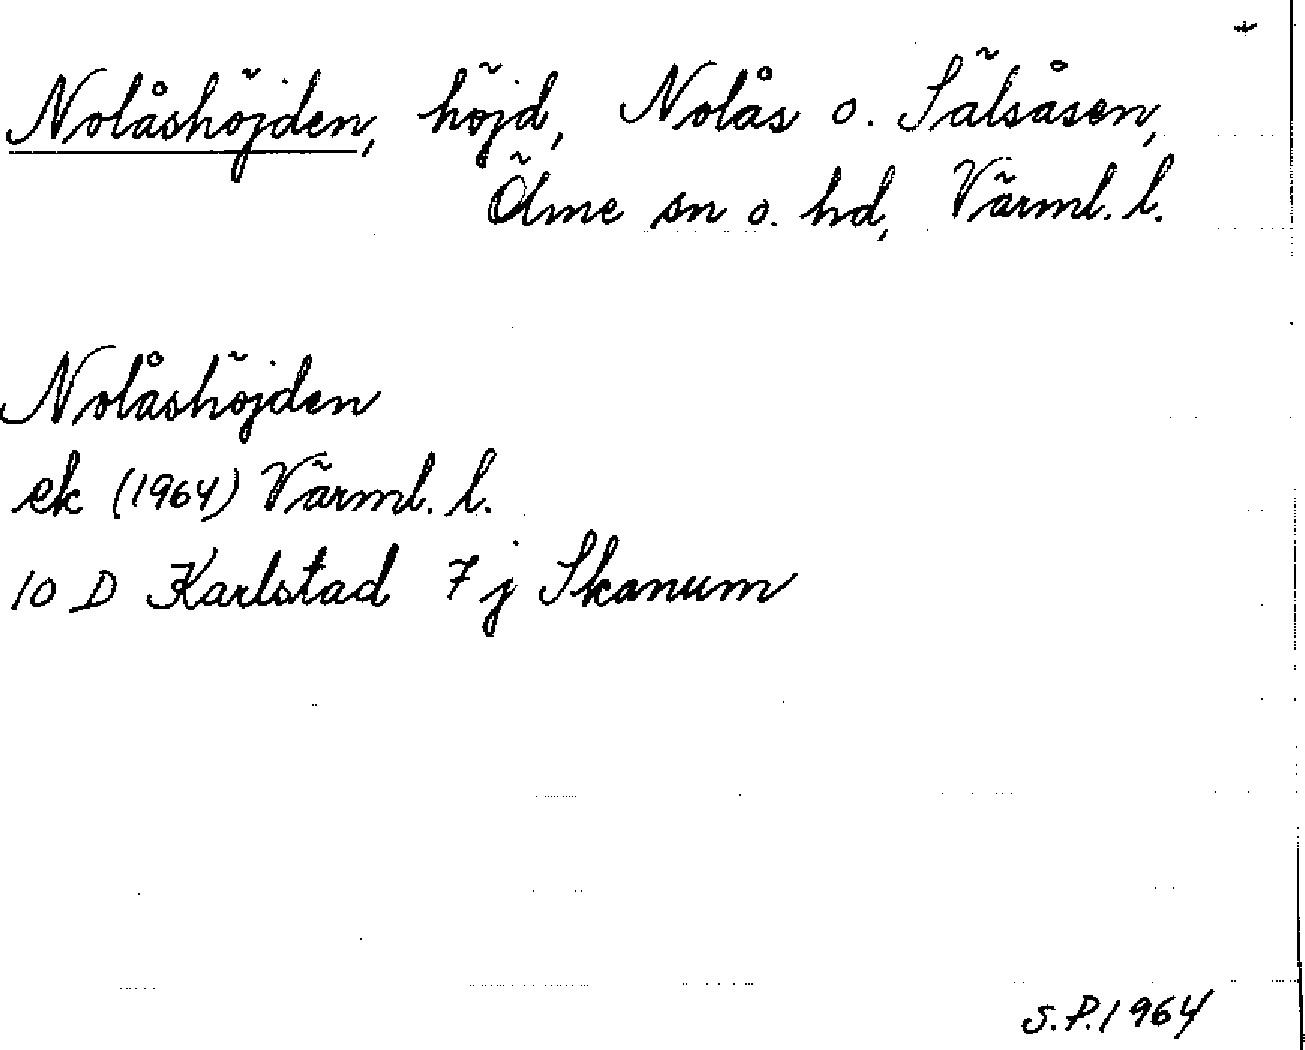 Nolåshöjden, höjd, Nolås o. Sälsåsen,
Ölme sn o. hd, Värml. l.
Nolåshöjden
ek (1964) Värml. l.
10 D Karlstad 7 j Skanum
S.P. 1964